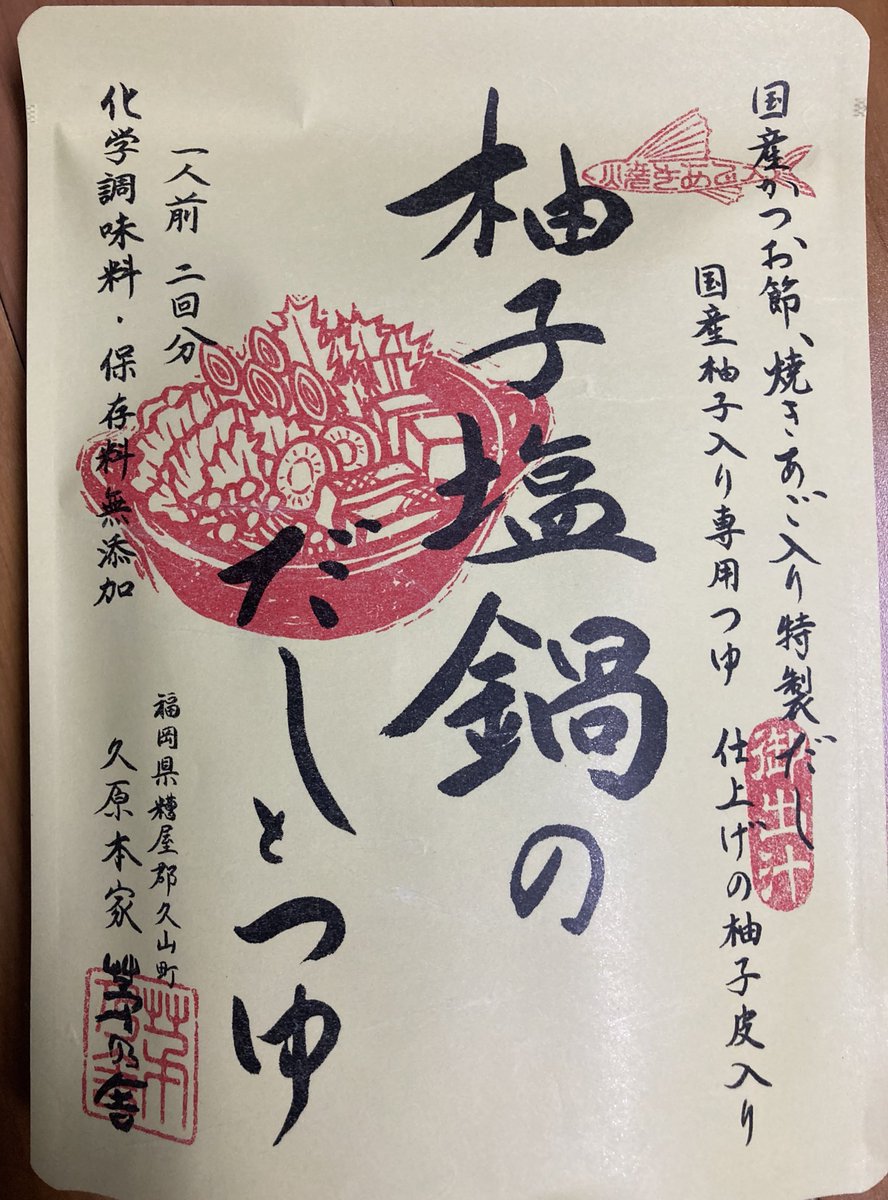 国産かつお節、焼きあご入り特製だし
焼きあご入
御出汁
国産柚子入り専用つゆ　仕上げの柚子皮入り
柚子塩鍋の
だしとつゆ
一人前　二回分
化学調味料・保存料無添加
福岡県糟屋郡久山町
久原本家　茅乃舎